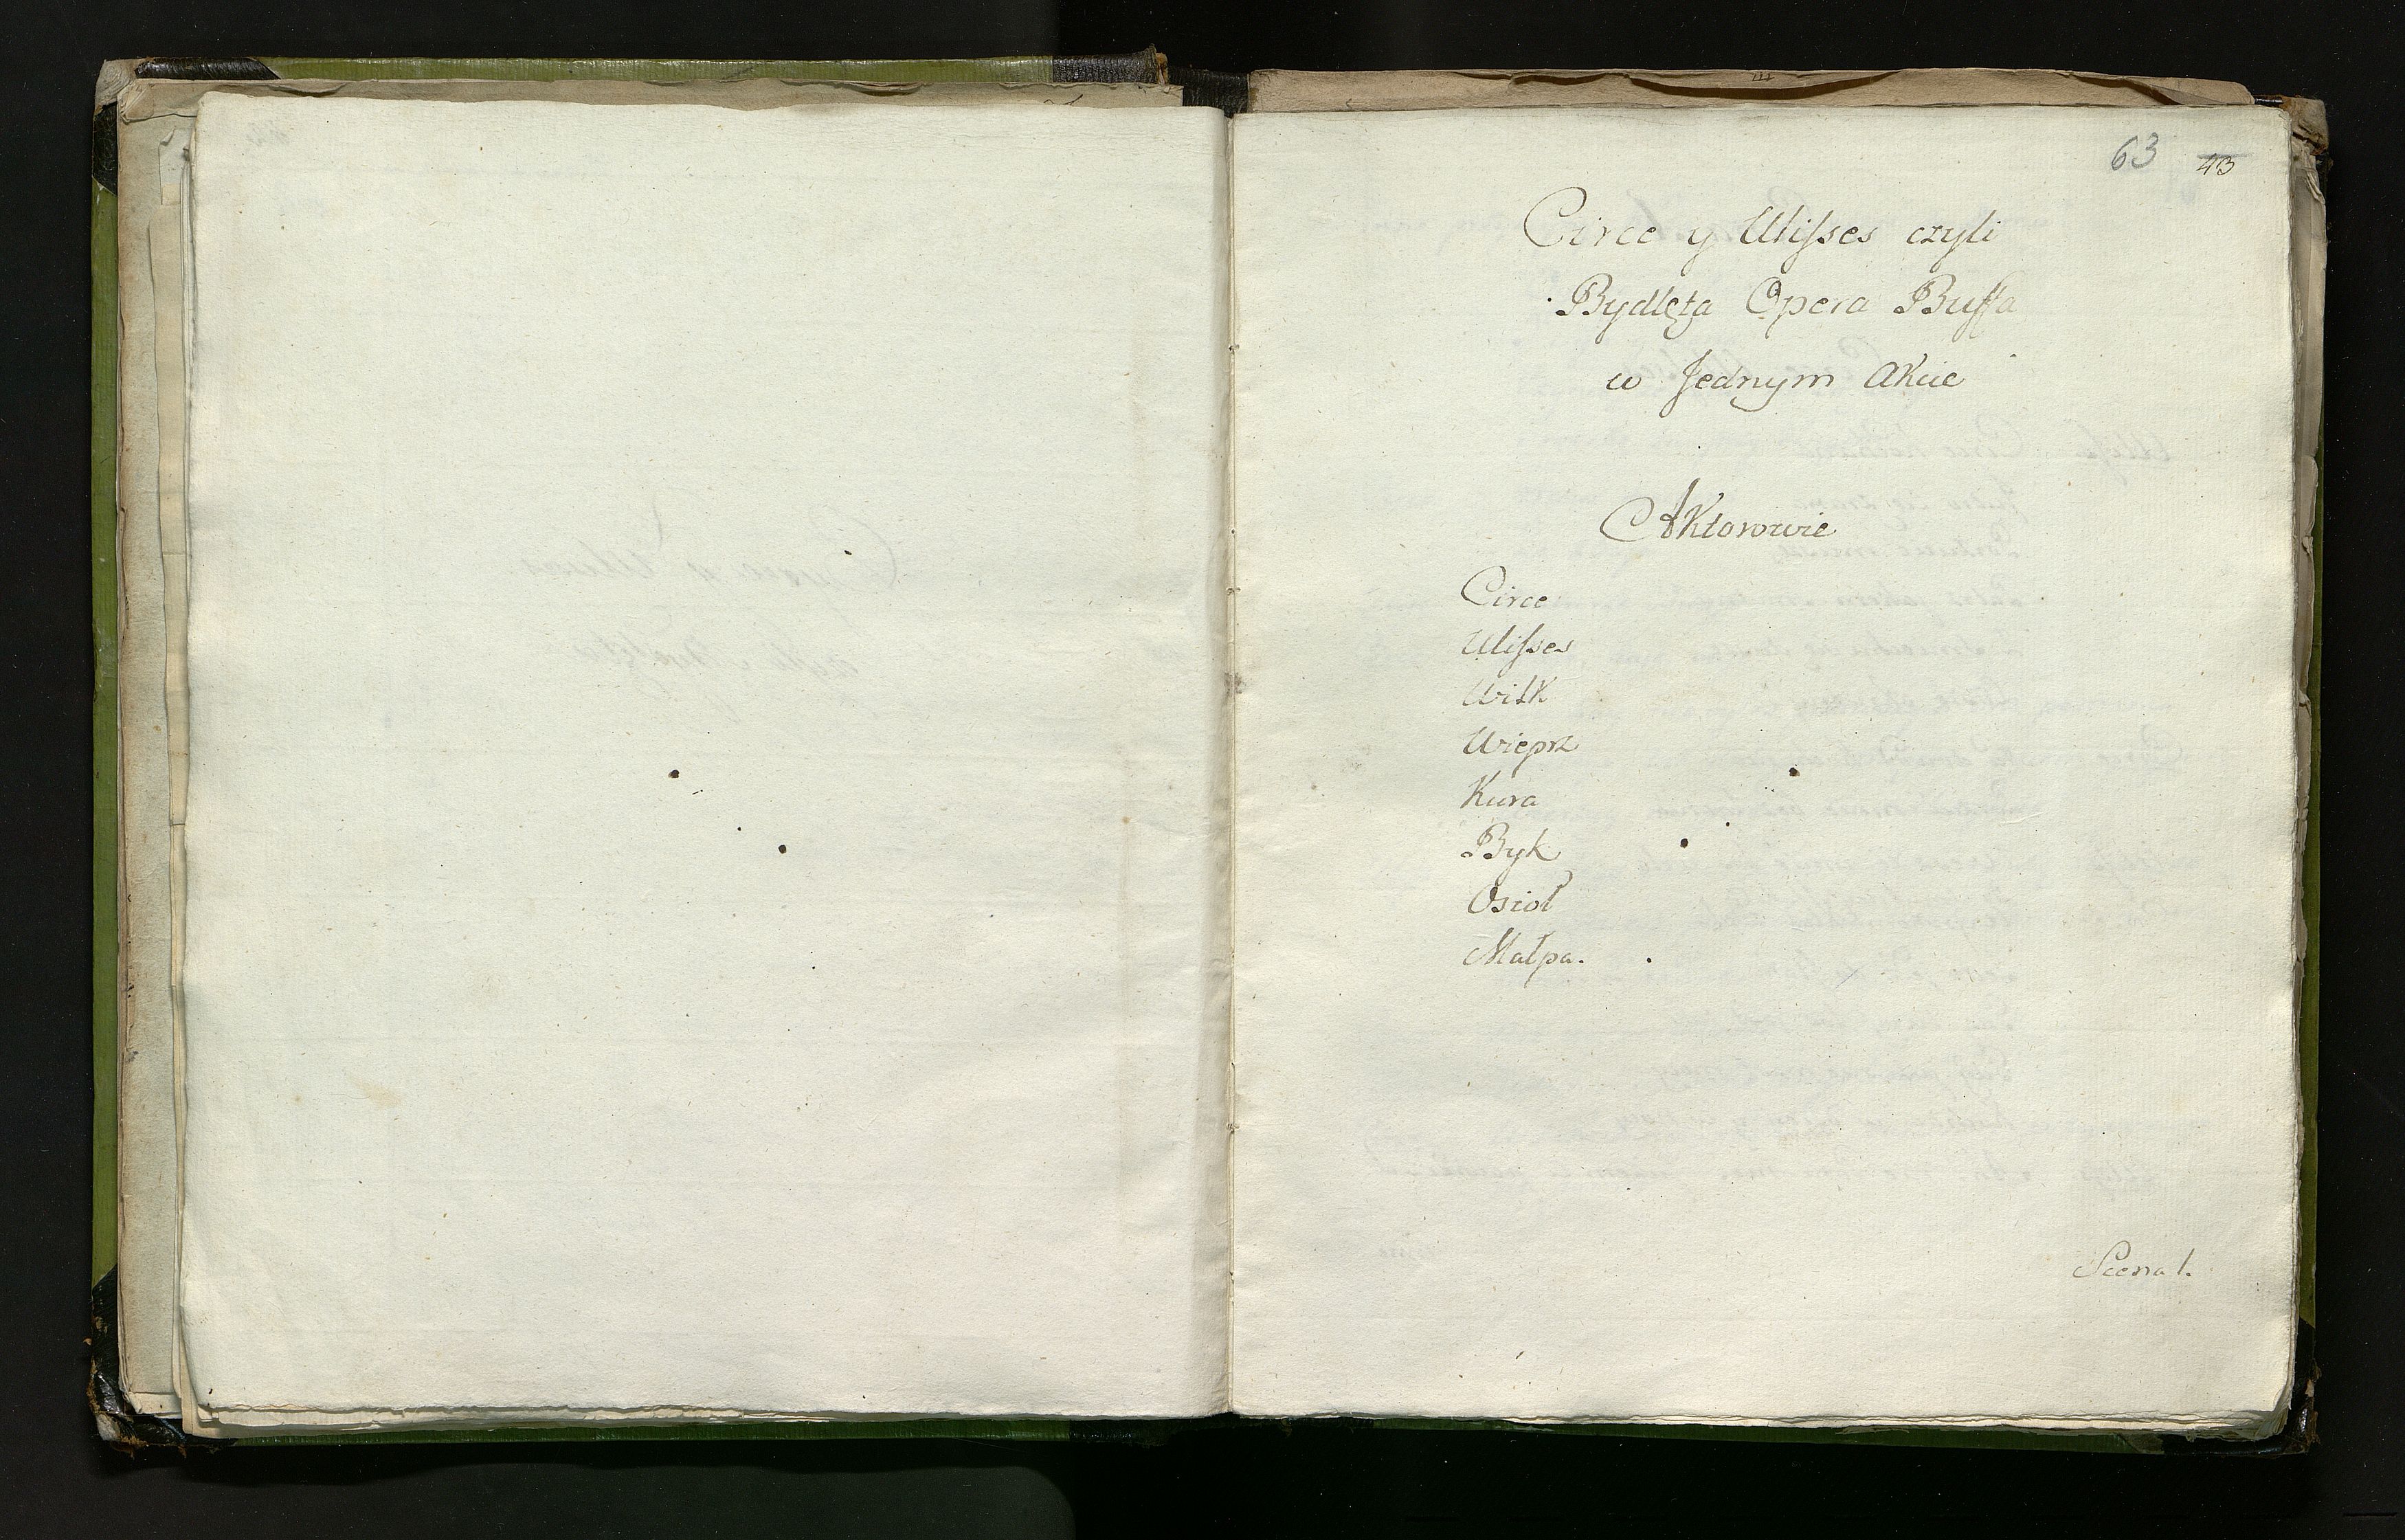 63 43
Circe y Ulisses czyli
Bydlęta Opera Buffa
w Jednym Akcie
Aktorowie
Circe
Ulisses
Wilk
Wieprz
Kura
Byk
Osioł
Małpa.
Scena 1.